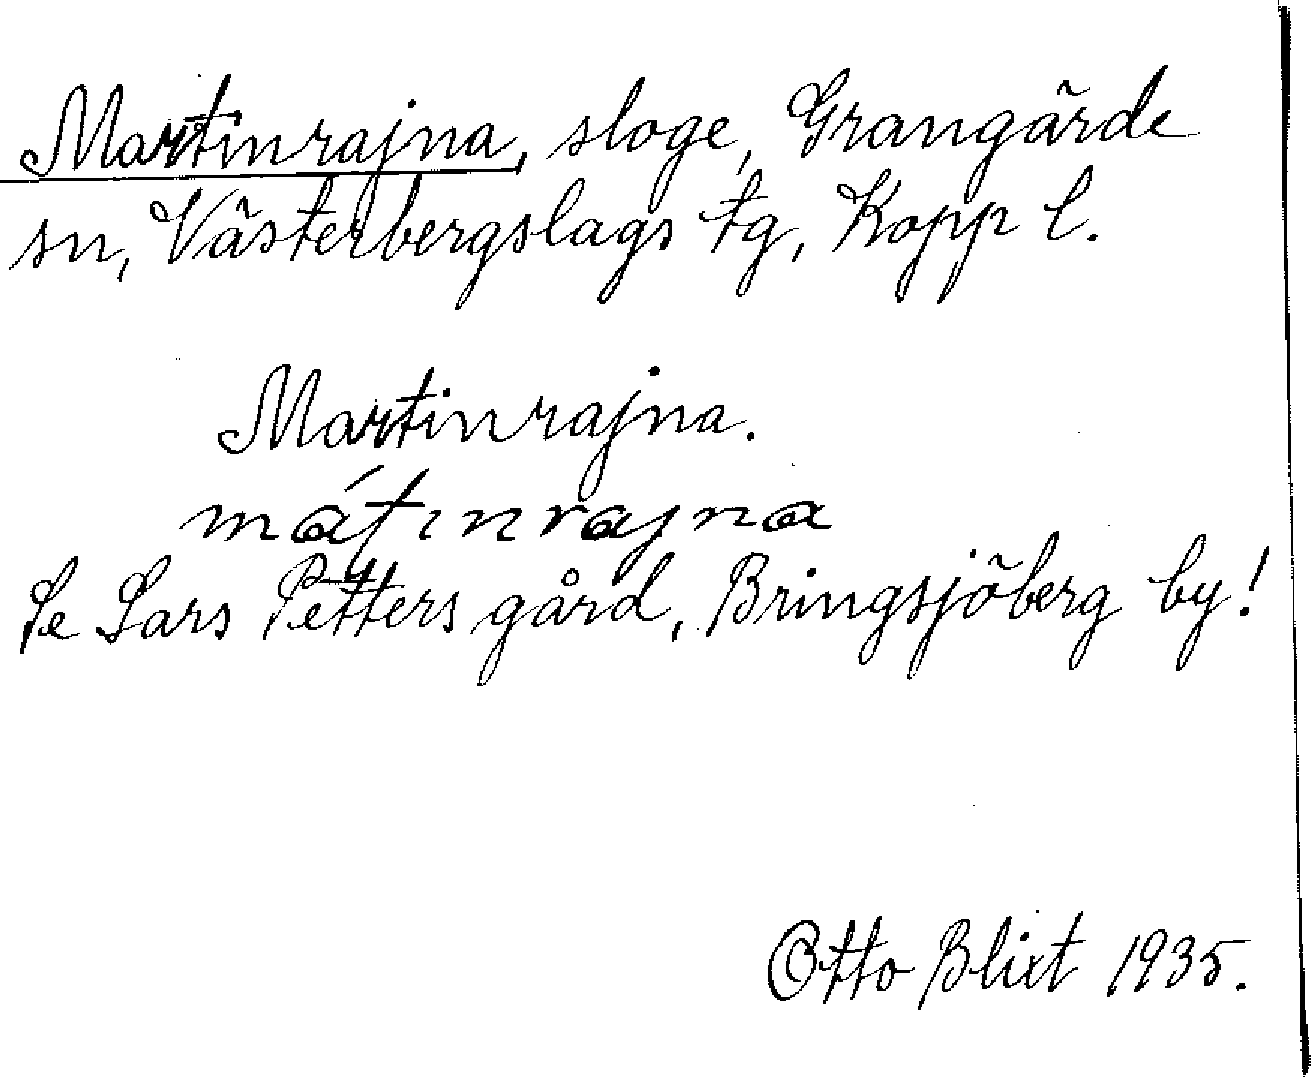 Martinrajna, sloge, Grangärde
sn, Västerbergslags tg, Kopp l.
Martinrajna.
mátinrajna
Se Lars Petters gård, Bringsjöberg by!
Otto Blixt 1935.